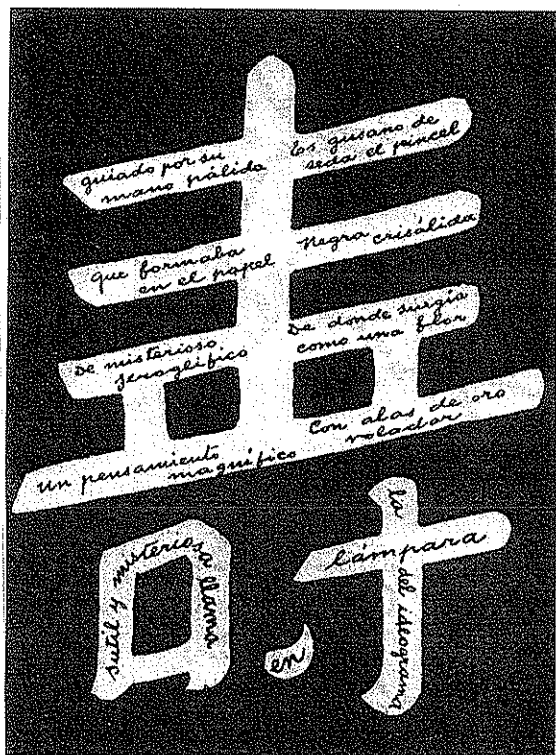 guiado por su
mano pálida
Es gusano de
seda el pincel
Que formaba
en el papel
Negra crisálida
De misterioso
jeroglífico
De donde surgía
como una flor
Un pensamiento
magnífico
Con alas de oro
volador
sutil y misteriosa llama
en
la
lámpara
del ideograma